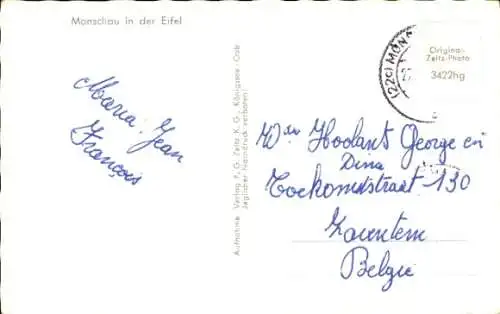 Monschau in der Eifel
Maria. Jean
François
Aufnahme Verlag P. G. Zeitz K. G., Königsee-Ob
Jeglicher Nachdruck verboten
(22c) MON
Original
Zeitz-Photo
3422hg
Hoolant George en
Dina
Toekomststraat 130
Zaventem
Belgie